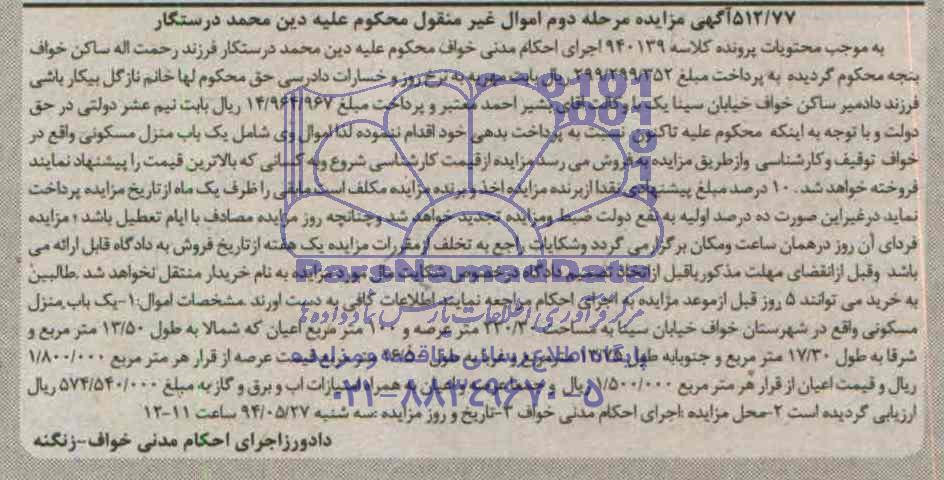 ۵۱۲/۷۷آگهی مزایده مرحله دوم اموال غیر منقول محکوم علیه دین محمد درستگار
به موجب محتویات پرونده کلاسه ۹۴۰۱۳۹ اجرای احکام مدنی خواف محکوم علیه دین محمد درستکار فرزند رحمت اله ساکن خواف
بنجه محکوم گردیده به پرداخت مبلغ ۲۹۹/۲۹۹/۳۵۲ ریال بابت مهریه به نرخ روز و خسارات دادرسی حق محکوم لها خانم نازگل بیکار باشی
فرزند دادمیر ساکن خواف خیابان سینا یک با وکالت آقای بشیر احمد معتبر و پرداخت مبلغ ۱۴/۹۶۴/۹۶۷ ریال بابت نیم عشر دولتی در حق
دولت و با توجه به اینکه محکوم علیه تاکنون نسبت به پرداخت بدهی خود اقدام ننموده لذا اموال وی شامل یک باب منزل مسکونی واقع در
خواف توقیف وکارشناسی وازطریق مزایده به فروش می رسد مزایده ازقیمت کارشناسی شروع وبه کسانی که بالاترین قیمت را پیشنهاد نمایند
فروخته خواهد شد. ۱۰ درصد مبلغ پیشنهادی نقدا ازبرنده مزایده اخذ و برنده مزایده مکلف است مابقی را ظرف یک ماه ازتاریخ مزایده پرداخت
نماید درغیراین صورت ده درصد اولیه به نفع دولت ضبط ومزایده تجدید خواهد شد وچنانچه روز مزایده مصادف با ایام تعطیل باشد ؛ مزایده
فردای آن روز درهمان ساعت ومکان برگزار می گردد وشکایات راجع به تخلف ازمقررات مزایده یک هفته ازتاریخ فروش به دادگاه قابل ارائه می
باشد وقبل ازانقضای مهلت مذکوریاقبل ازاتخاذ تصمیم دادگاه درخصوص شکایت مال مورد مزایده به نام خریدار منتقل نخواهد شد .طالبین
به خرید می توانند ۵ روز قبل ازموعد مزایده به اجرای احکام مراجعه نمایند اطلاعات کافی به دست اورند .مشخصات اموال:۱-یک باب منزل
مسکونی واقع در شهرستان خواف خیابان سینا به مساحت متر عرصه و ۱۰۰ متر مربع اعیان که شمالا به طول ۱۳/۵۰ متر مربع و
شرقا به طول ۱۷/۳۰ متر مربع و جنوبابه طول متر مربع و غربا به طول متر مربع قیمت عرصه از قرار هر متر مربع ۱/۸۰۰/۰۰۰
ریال و قیمت اعیان از قرار هر متر مربع ۱/۵۰۰/۰۰۰ ریال و جمعا عرصه و اعیان به همراه امتیازات اب و برق و گاز به مبلغ ۵۷۴/۵۴۰/۰۰۰ ریال
ارزیابی گردیده است ۲-محل مزایده :اجرای احکام مدنی خواف ۳-تاریخ و روز مزایده :سه شنبه ۹۴/۰۵/۲۷ ساعت ۱۱-۱۲
دادورزاجرای احکام مدنی خواف-زنگنه
ParsNamadData
مرکز فرآوری اطلاعات پارس نماد داده ها
پایگاه اطلاع رسانی مناقصه و مزایده
۰۲۱-۸۸۳۴۹۶۷۰-۵